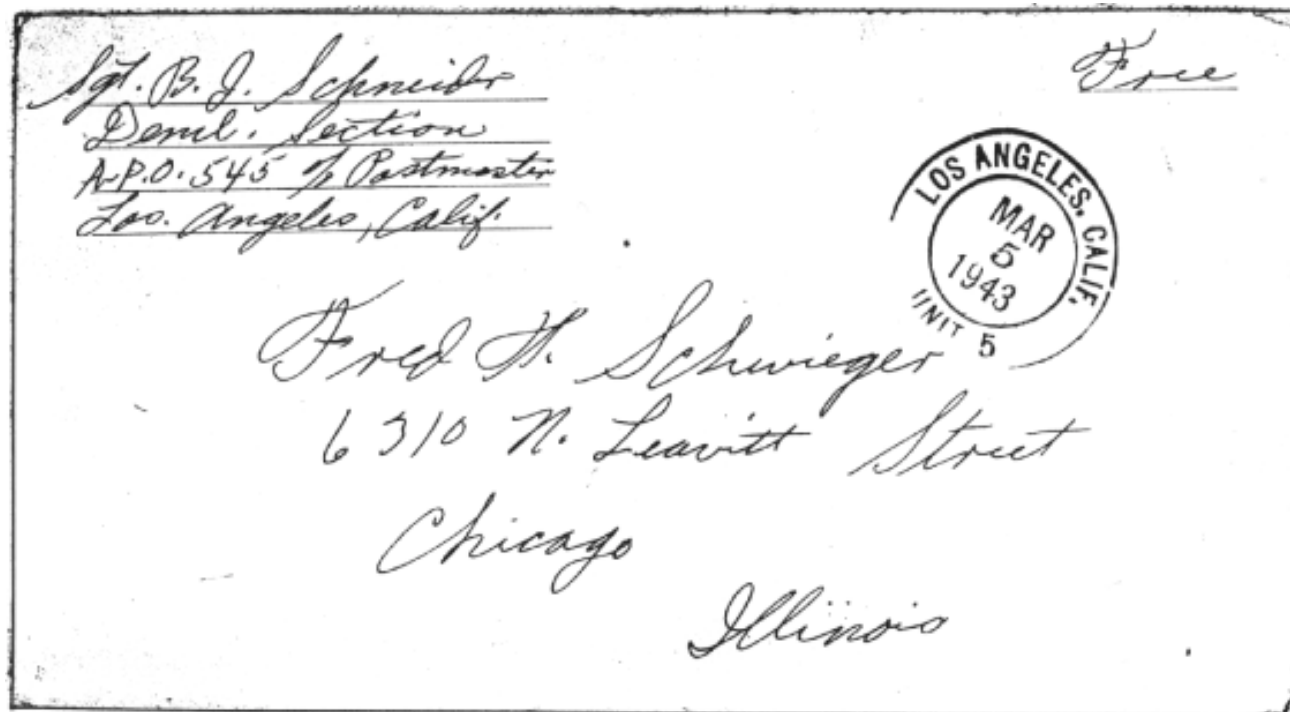 Sgt. B. J. Schneider
Deml. Section
A.P.O. 545 c/o Postmaster
Los. Angeles, Calif.
Free
LOS ANGELES, CALIF.
MAR
5
1943
UNIT 5
Fred H. Schwieger
6310 N. Leavitt Street
Chicago
Illinois